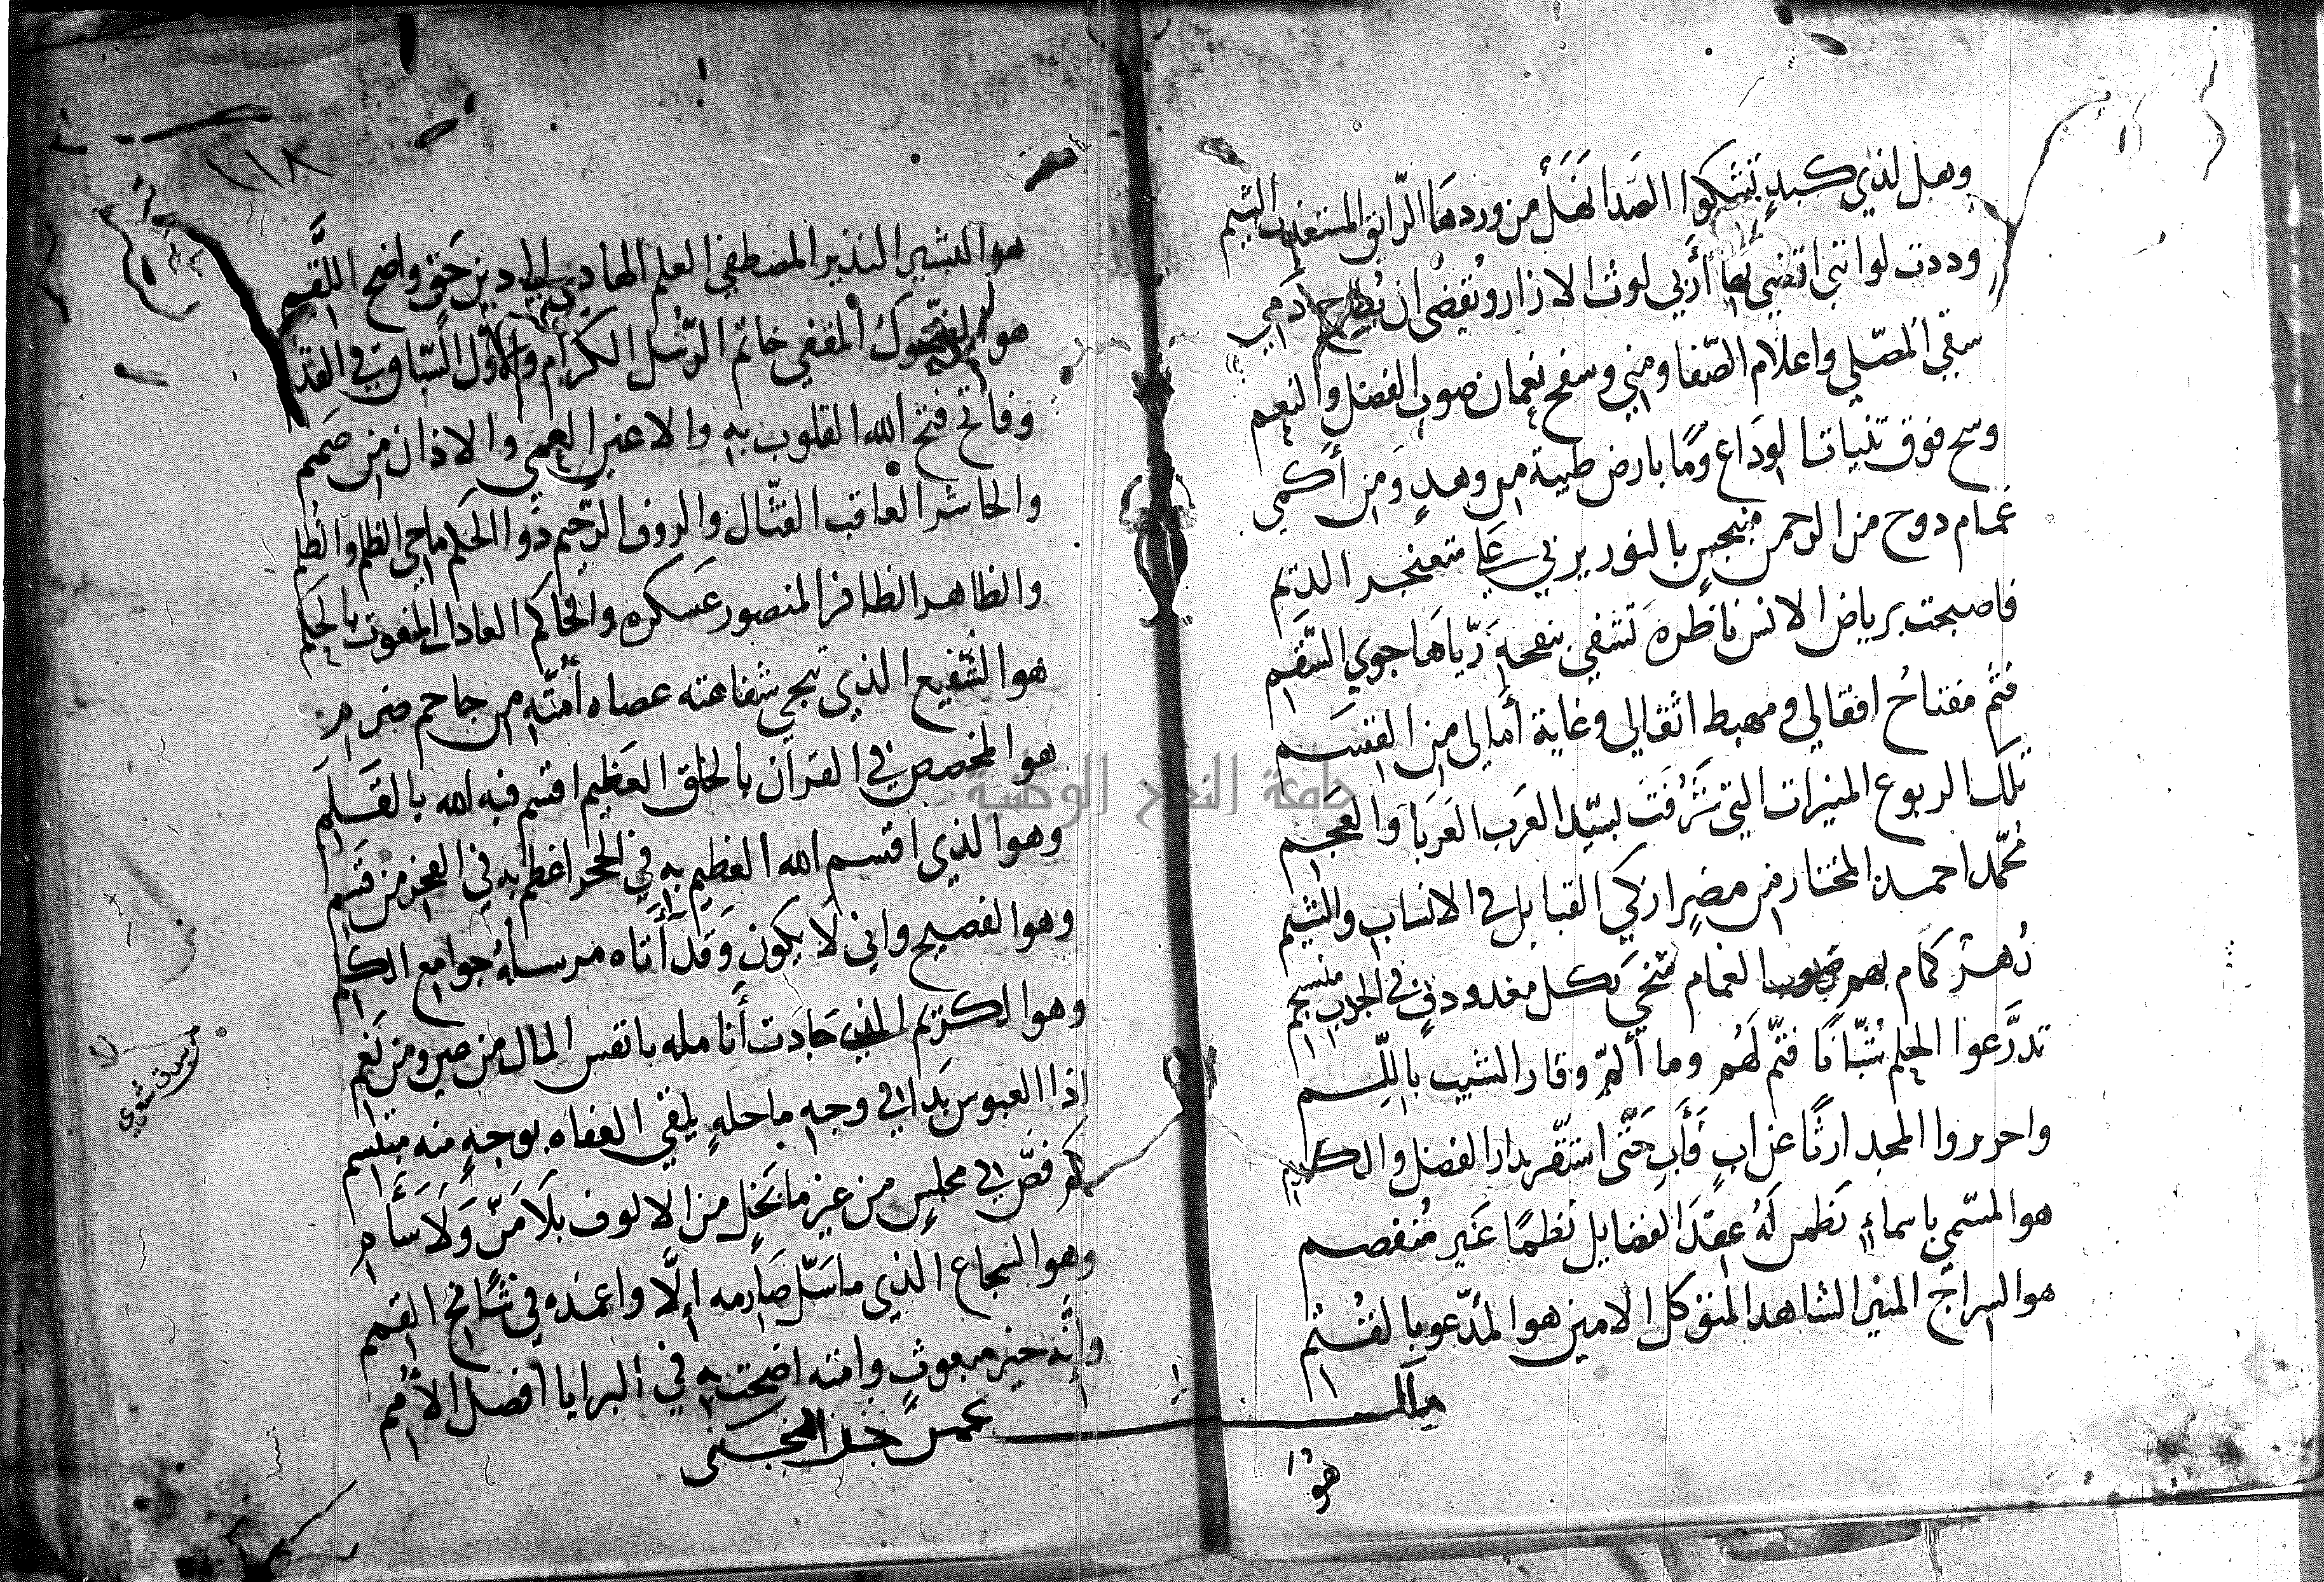 وهل لذي كبدٍ تشكوا الصدا نهل من وردها الرائق المستعذب الشيم
وددت لو انني اقضي بها أربي لوث الازار ونقضى ان يطيح دمي
سقي المصلي واعلام الصّفا ومني وسفح نعمان صوب الفضل والنعم
وسح فوق ثنيات الوداع وما بارض طيبة من وهدٍ ومن أكم
غمام دوح من الرحمن منبجسٍ بالنور يربي علي مثعنجر الديم
فاصبحت برياض الانس ناظره تشفي بنفحة ريّاها جوي السّقم
فثم مفتاحُ اقفالي ومهبط اثقالي وغاية أمالي من القسم
تلك الربوع المنيرات التي شرُفت بسيّد العرب العربا والعجم
محمّد احمد المختار من مضرٍ ازكي القبايل في الانساب والشيم
زُهرٌ كمام بهم صوب الغمام سخي بكل مغدودقٍ في الجدب منسجم
تدرَّعوا الحلم شُبّانًا فتمّ لهُم وما ألمّ وقار الشيب باللّمم
واحرزوا المجد ارثًا عن ابٍ فأبٍ حتّى استقّر بدار الفضل والكرم
هو المسّمي باسماءٍ نظمن لهُ عقد الفضايل نظمًا غير مُنفصم
هو السراج المنير الشاهد المتوكل الامين هو المدّعو بالقُثم
هوَ
١١٨
هو البشير النذير المصطفي العلم الهادي الي دين حقٍ واضح اللقم
هو الضحوك المقفي خاتم الرّسل الكرام والاوّل السّباق في القدم
وفاتح فتح الله القلوب به والاعين العمي والاذان من صمم
والحاشر العاقب القتّال والروف الرّحيم ذوا الحلم ماحي الظلم والظلم
والظاهر الظافر المنصور عسكره والحاكم العادل المنعوت بالحكم
هو الشّفيع الذي تنجي شفاعته عصاه أمّته من جاحم ضرم
هو المخصص في القرآن بالخلق العظيم اقسم فيه الله بالقلم
وهو الذي اقسم الله العظيم به في الحجر اعظم به في الفجر من قسم
وهو الفصيح واني لا يكون وقد أتاه مرسله جوامع الكلم
وهو الكريم الذي جادت أنامله بانفس المال من عين ومن نعم
اذا العبوس بدا في وجه ماحلهٍ يلقي العفاه بوجهٍ منه مبتسم
كم فضّ في مجلسٍ من غير ما بخلٍ من الالوف بلا منّ ولا سأم
وهو الشجاع الذي ما سلّ صارمه إلّا واغمده في شامخ القمم
وإنّه خير مبعوثٍ وامته اضحت به في البرايا افضل الأمم